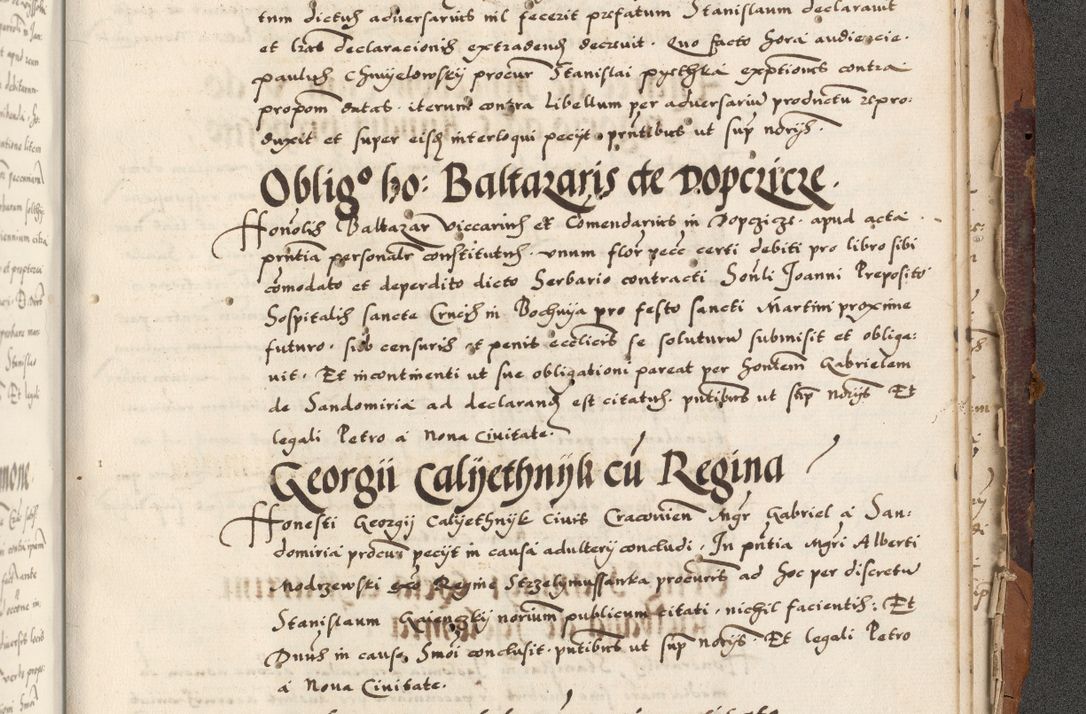 tum dictus adversarius nil fecerit prefatum Stanislaum declaravit
et lras declaracionis extradend decrevit. Quo facto hora audiencie.
paulus Chmyelowskij procur Stanislai pyethka exptiones contra
propom datas. iterum contra Libellum per adversariu productu repro:
duxit et super eisd interloqui pecijt. pntibus ut sup norijs.
Obligo ho: Baltazaris de Dopczicze.
Honolis Baltazar Viccarius et Comendarius in Dopczicze. apud acta
pntia personalr constitutus. unum flor pecc certi debiti pro libro sibi
comodato et deperdito dicto herbario contracti honli Joanni Preposito
hospitalis sancte Crucis in Bochnija pro festo sancti Martini proxime
futuro. sub censuris et penis ecclicis se soluturu submisit et obliga:
vit. Et incontinenti ut sue obligationi pareat per honem Gabrielem
de Sandomiria ad declarand est citatus. pntibus ut sup norijs Et
legali Petro a Nova Civitate.
Georgii Calijethnijk cu Regina
Honesti Georgij Calijethnijk Civis Cracovien Mgr Gabriel a San:
domiria procur pecijt in causa adulterij concludi. In pntia Mgri Alberti
Modrzewski Regine Strzelymussanka procuris ad hoc per discretu
Stanislaum norium publicum citati. nichil facientis: Et
Duns in causa hmoi conclusit. pntibus ut sup norijs. Et legali Petro
a Nova Civitate.